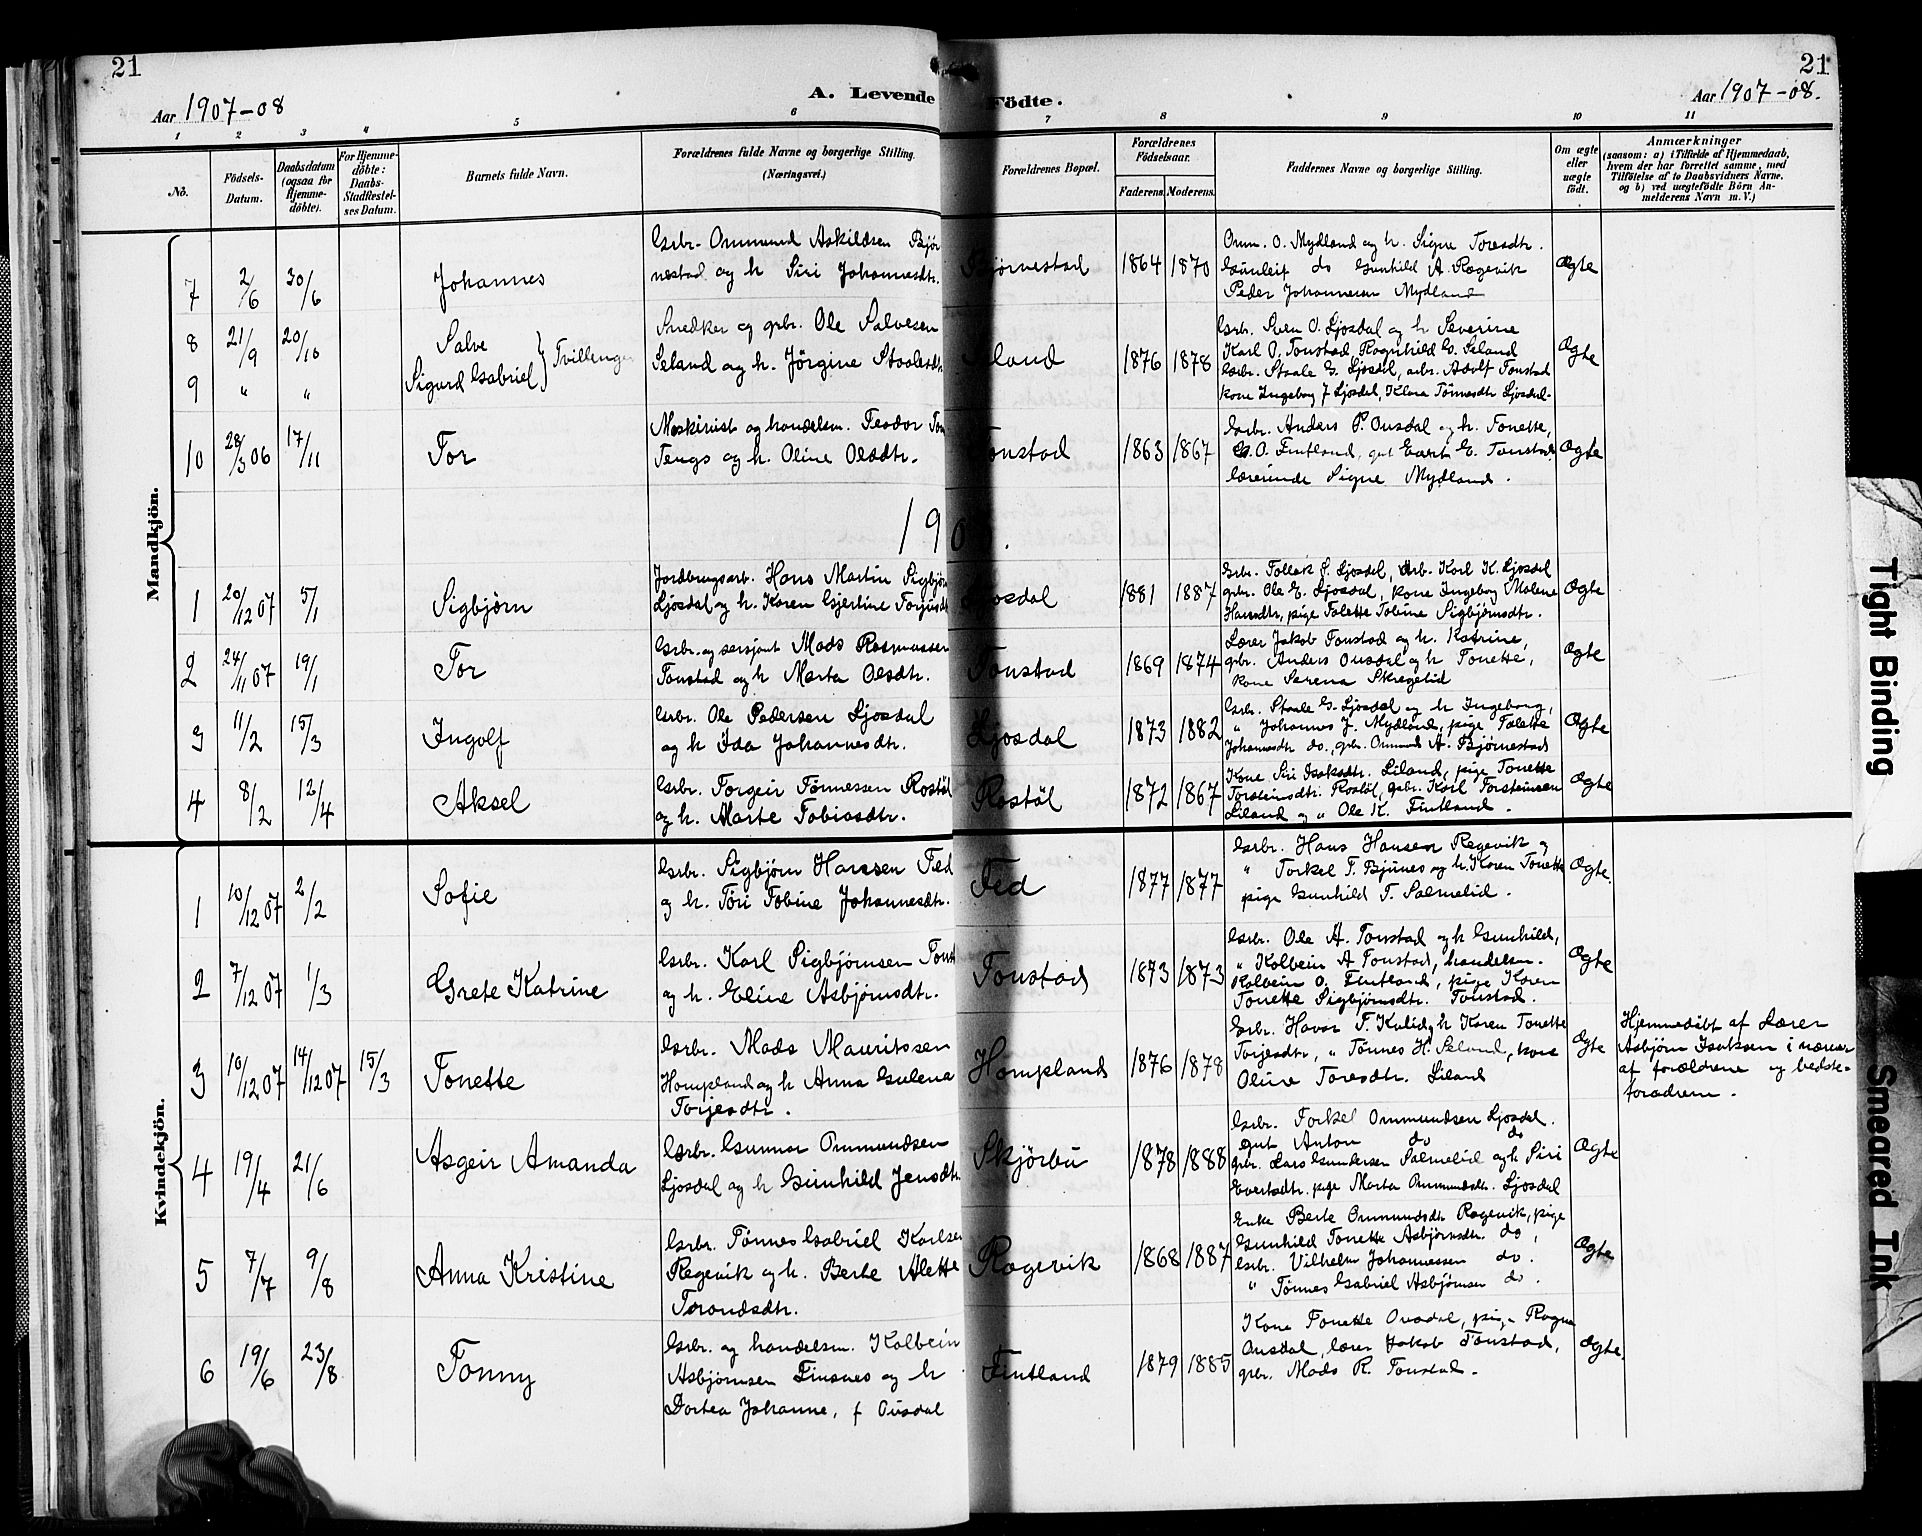 21
21
Aar 1907-08
A. Levende Födte.
Aar 1907-08.
1 2 3 4 5 6 7 8 9 10 11
No.
Födsels-Datum.
Daabsdatum (ogsaa for Hjemme-döbte).
For Hjemme-döbte: Daabs-Stadfæstel-ses Datum.
Barnets fulde Navn.
Forældrenes fulde Navne og borgerlige Stilling.
(Næringsvei.)
Forældrenes Bopæl.
Forældrenes Födselsaar.
Faderens. Moderens.
Faddernes Navne og borgerlige Stilling.
Om ægte eller uægte födt.
Anmærkninger
(saasom: a) i Tilfælde af Hjemmedaab,
hvem der har forrettet samme, med
Tilföielse af to Daabsvidners Navne,
og b) ved uægtefödte Börn An-
melderens Navn m. V.)
Mandkjön.
7 2/6 30/6 Johannes
Grbr. Ommund Askildsen Bjør
nestad og h. Siri Johannesdtr.
Bjørnestad 1864 1870
Omm. O. Mydland og h. Signe Toresdtr.
Gunleif do Gunhild A. Rogevik
Peder Johannesen Mydland
Ægte
8 21/9 20/10 Salve
9 " " Sigurd Gabriel } Tvillinger
Snedker og grbr. Ole Salvesen
Seland og h. Jörgine Staalesdtr
Seland 1876 1878
Grbr. Sven O. Ljosdal og h Severine
Karl O. Tonstad, Ragnhild G. Seland
Grbr. Staale G. Ljosdal, arb. Adolf Tonstad
kone Ingeborg J Ljosdal, Klara Tønnesdtr Ljosdal.
Ægte
10 28/3 06 17/11 Tor
Maskinist og handelsm. Teodor Ton
Tengs og h. Oline Olsdtr.
Tonstad 1863 1867
Grbr. Anders P. Ousdal og h. Tonette,
G. O. Fintland, gut Evert E. Tonstad
lærerinde Signe Mydland.
Ægte
190
1 20/12 07 5/1 Sigbjörn
Jordbrugsarb. Hans Martin Sigbjör
Ljosdal og h. Karen Gjertine Torjusdt
Ljosdal 1881 1887
Grbr. Tollak S. Ljosdal, Arb. Karl K. Ljosdal
grbr. Ole E. Ljosdal, kone Ingeborg Malene
Hansdtr, pige Talette Tobine Sigbjörnsdtr.
Ægte
2 24/11 07 19/1 Tor
Grbr. og sersjant Mads Rasmussen
Tonstad og h Marta Olsdtr.
Tonstad 1869 1874
Lærer Jakob Tonstad og h. Katrine,
grbr. Anders Ousdal og h Tonette,
kone Serena Skregelid
Ægte
3 11/2 15/3 Ingolf
Grbr. Ole Pedersen Ljosdal
og h Ida Johannesdtr.
Ljosdal 1873 1882
Grbr. Staale G. Ljosdal og h Ingeborg,
" Johannes J. Mydland, pige Talette
Johannesdtr do., grbr. Ommund A. Bjørnestad
Ægte
4 8/2 12/4 Aksel
Grbr. Torgeir Tönnessen Rostöl
og h. Marte Tobiasdtr.
Rostöl 1872 1867
Kone Siri Isaksdtr. Liland, pige Tonette
Torsteinsdtr. Rostöl, grbr. Karl Torsteinsen
Liland og " Ole K. Fintland.
Ægte
Kvindekjön.
1 10/12 07 2/2 Sofie
Grbr. Sigbjørn Hansen Fed
og h. Töri Tobine Johannesdtr.
Fed 1877 1877
Grbr. Hans Hansen Rogevik og
" Torkel T. Bjunes og h. Karen Tonette
pige Gunhild T. Salmelid.
Ægte.
2 7/12 07 1/3 Grete Katrine
Grbr. Karl Sigbjørnsen Tonst
og h. Eline Asbjørnsdtr.
Tonstad 1873 1873
Grbr. Ole A. Tonstad og h Gunhild,
" Kolbein A Tonstad, handelsm.
Kolbein O. Fintland, pige Karen
Tonette Sigbjørnsdtr. Tonstad.
Ægte
3 10/12 07 14/12 07 15/3 Tonette
Grbr. Mads Mauritssen
Hompland og h Anna Gulena
Torjesdtr.
Hompland 1876 1878
Grbr. Havor T. Kvlid og h Karen Tonette
Torjesdtr, " Tønnes H. Seland, kone
Oline Toresdtr. Liland
Ægte
Hjemmedöbt af Lærer
Asbjørn Isaksen i nærvær
af forældrene og bedste-
forældrene.
4 19/4 21/6 Asgeir Amanda
Grbr. Gunnar Ommundsen
Ljosdal og h Gunhild Jensdtr
Skjörbu 1878 1888
Grbr. Torkel Ommundsen Ljosdal.
gut Anton do do
grbr. Lars Gundersen Salmelid og h Siri
Evertsdtr. pige Marta Ommundsdtr. Ljosdal
Ægte
5 7/7 9/8 Anna Kristine
Grbr. Tönnes Gabriel Karlsen
Rogevik og h. Berte Alette
Torandsdtr.
Rogevik 1868 1887
Enke Berte Ommundsdtr Rogevik, pige
Gunhild Tonette Asbjørnsdtr. do,
Grbr. Vilhelm Johannessen do.
" Tønnes Gabriel Asbjørnsen do.
Ægte
6 19/6 23/8 Tonny
Grbr. og handelsm. Kolbein
Asbjørnsen Finsnes og h
Dortea Johanne, f Ousdal
Fintland 1879 1885
Kone Tonette Ousdal, pige Ragna
Ousdal, lærer Jakob Tonstad,
grbr. Mads R. Tonstad.
Ægte.
Tight Binding
Smeared Ink